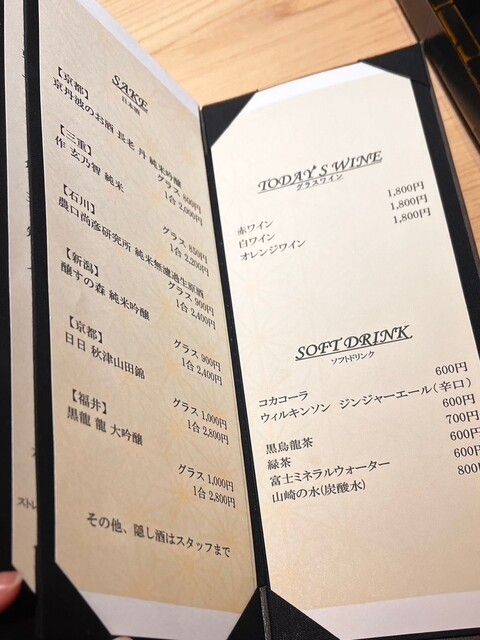 SAKE
日本酒
【京都】
京丹波のお酒 長老 丹 純米吟醸
グラス 800円
1合 2,000円
【三重】
作 玄乃智 純米
グラス 850円
1合 2,200円
【石川】
農口尚彦研究所 純米無濾過生原酒
グラス 900円
1合 2,400円
【新潟】
醸すの森 純米吟醸
グラス 900円
1合 2,400円
【京都】
日日 秋津山田錦
グラス 1,000円
1合 2,800円
【福井】
黒龍 龍 大吟醸
グラス 1,000円
1合 2,800円
その他、隠し酒はスタッフまで
TODAY'S WINE
グラスワイン
赤ワイン 1,800円
白ワイン 1,800円
オレンジワイン 1,800円
SOFT DRINK
ソフトドリンク
コカコーラ 600円
ウィルキンソン ジンジャーエール(辛口) 600円
黒烏龍茶 700円
緑茶 600円
富士ミネラルウォーター 600円
山崎の水(炭酸水) 800